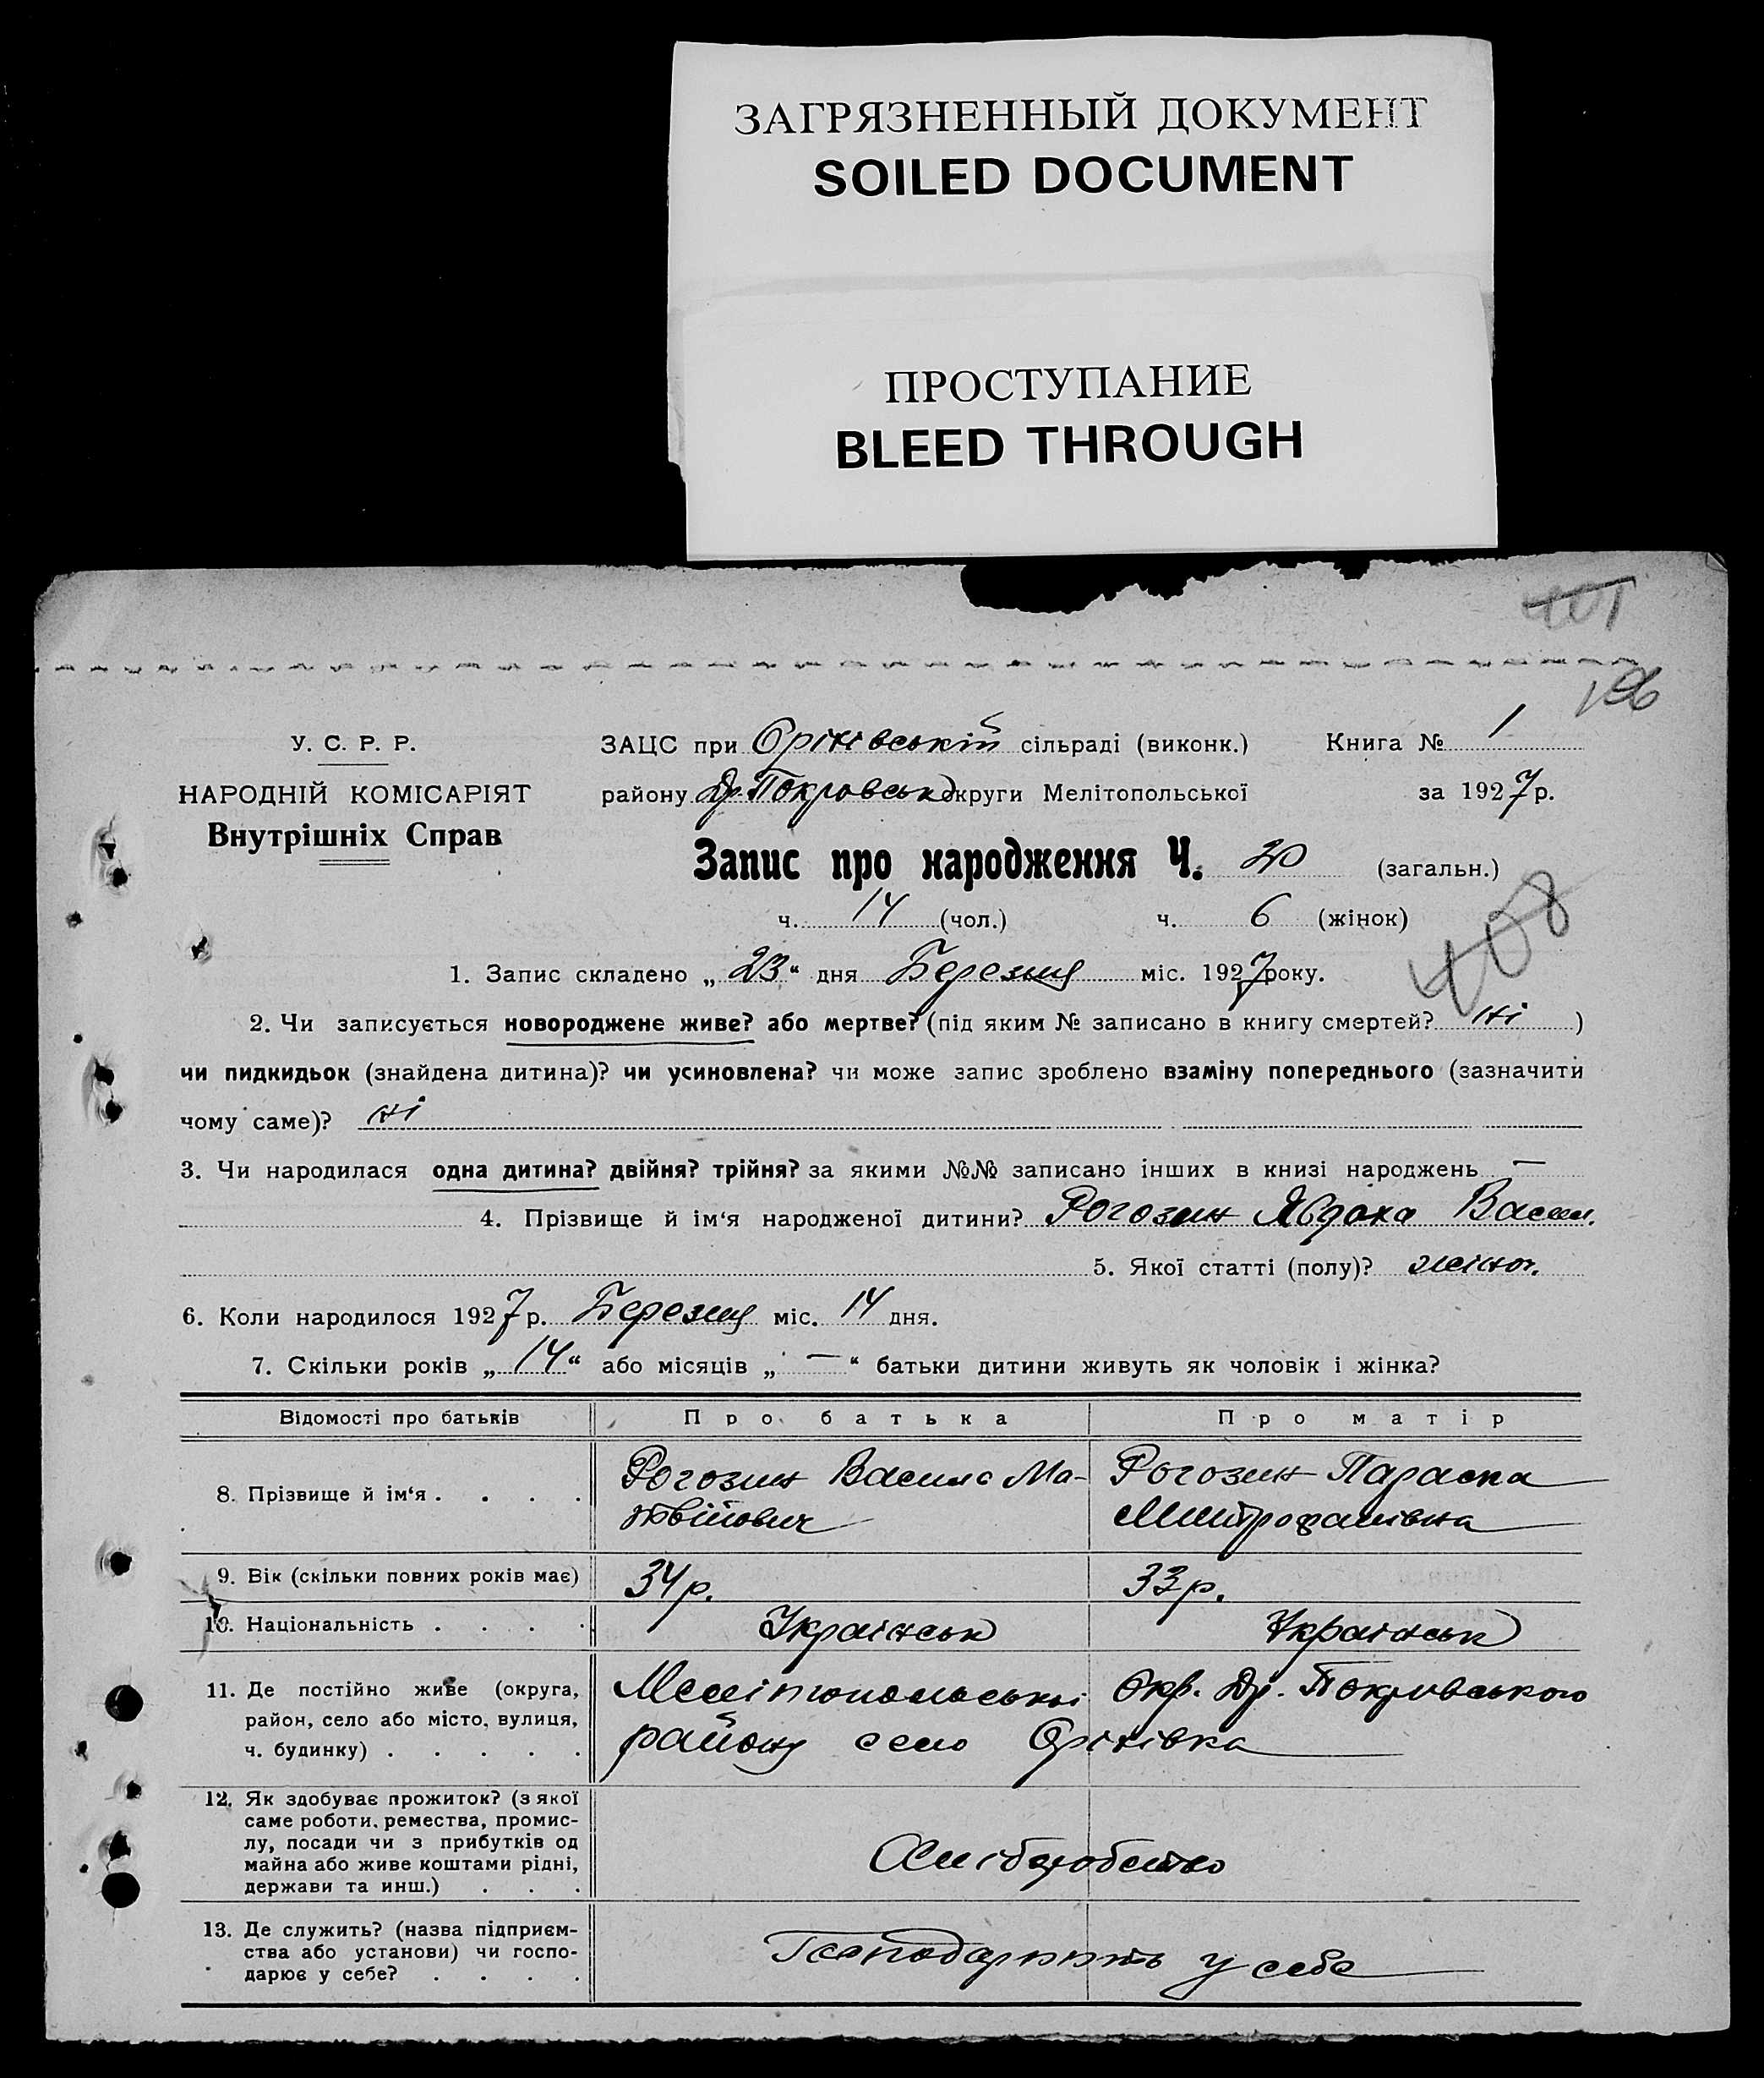 ЗАГРЯЗНЕННЫЙ ДОКУМЕНТ
SOILED DOCUMENT
ПРОСТУПАНИЕ
BLEED THROUGH
401
196
У. С. Р. Р.
НАРОДНІЙ КОМІСАРІЯТ
Внутрішніх Справ
ЗАЦС при Орінівській сільраді (виконк.) Книга № 1
району Др. Покровськ округи Мелітопольської за 1927 р.
Запис про народження Ч. 20 (загальн.)
ч. 14 (чол.) ч. 6 (жінок)
408
1. Запис складено „ 23 “ дня Березня міс. 1927 року.
2. Чи записується новороджене живе? або мертве? (під яким № записано в книгу смертей? ні )
чи пидкидьок (знайдена дитина)? чи усиновлена? чи може запис зроблено взаміну попереднього (зазначити
чому саме)? ні
3. Чи народилася одна дитина? двійня? трійня? за якими №№ записано інших в книзі народжень —
4. Прізвище й ім‘я народженої дитини? Рогозин Явдоха Васил.
5. Якої статті (полу)? жіноч.
6. Коли народилося 1927 р. Березня міс. 14 дня.
7. Скільки років „ 14 “ або місяців „ — “ батьки дитини живуть як чоловік і жінка?
Відомості про батьків Про батька Про матір
8. Прізвище й ім‘я . . . . Рогозин Василь Ма- Рогозин Параска
твійович Митрофанівна
9. Вік (скільки повних років має) 34 р. 33 р.
10. Національність . . . . Українськ Українськ
11. Де постійно живе (округа, Мелітопольської Окр. Др. Покровського
район, село або місто, вулиця, району село Орінівка
ч. будинку) . . . . .
12. Як здобуває прожиток? (з якої
саме роботи, ремества, промис-
лу, посади чи з прибутків од
майна або живе коштами рідні,
держави та инш.) . . . Хліборобство
13. Де служить? (назва підприєм-
ства або установи) чи госпо-
дарює у себе? . . . . Господарюють у себе